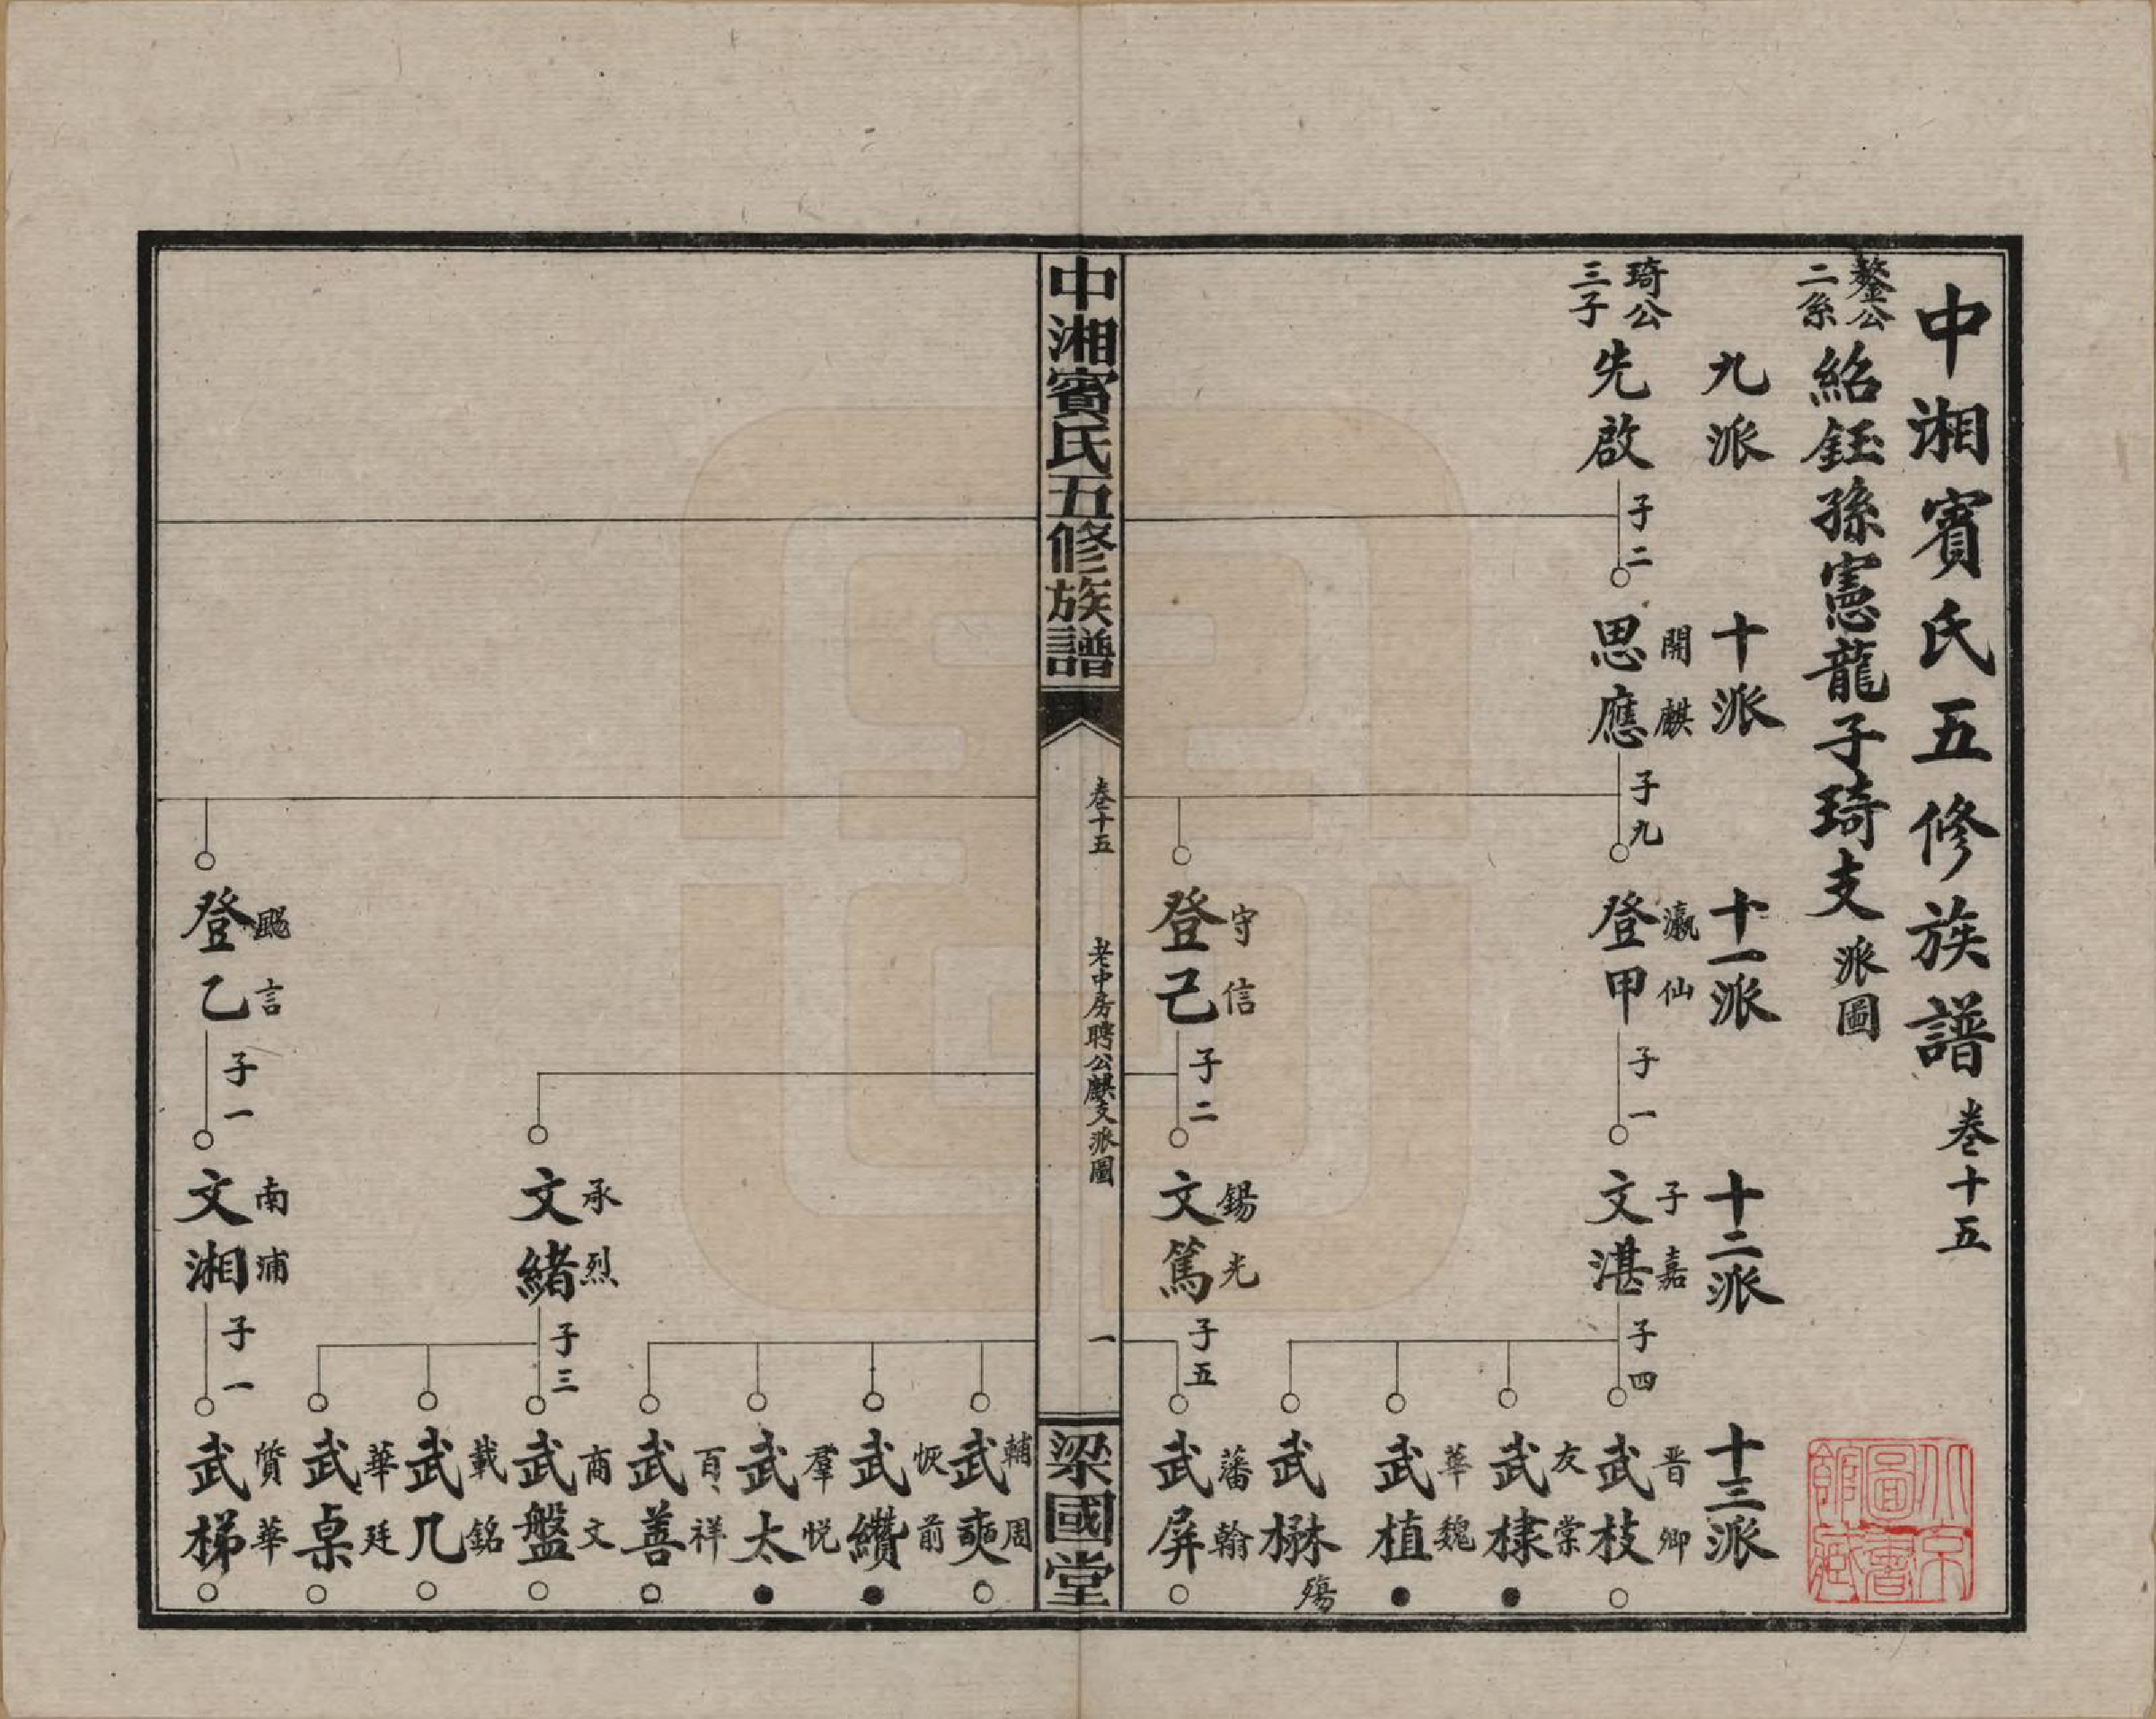 中湘賓氏五修族譜 卷十五
鏊公二系 紹鈺孫憲龍子琦支派圖
九派
十派
十一派
十二派
十三派
琦公三子 先啟 子二
思應 開麒 子九
登甲 瀛仙 子一
文湛 子嘉 子四
武枝 晋卿
武棣 友棠
武植 華魏
武楙 殤
登己 守信 子二
文篤 錫光 子五
武屏 藩翰
中湘賓氏五修族譜
卷十五
老中房聘公麒支派圖
一
梁國堂
武奭 輔周
武纘 恢前
武太 羣悅
武善 百祥
文緒 承烈 子三
武盤 商文
武几 載銘
武桌 華廷
登乙 颺言 子一
文湘 南浦 子一
武梯 質華
北京圖書館藏